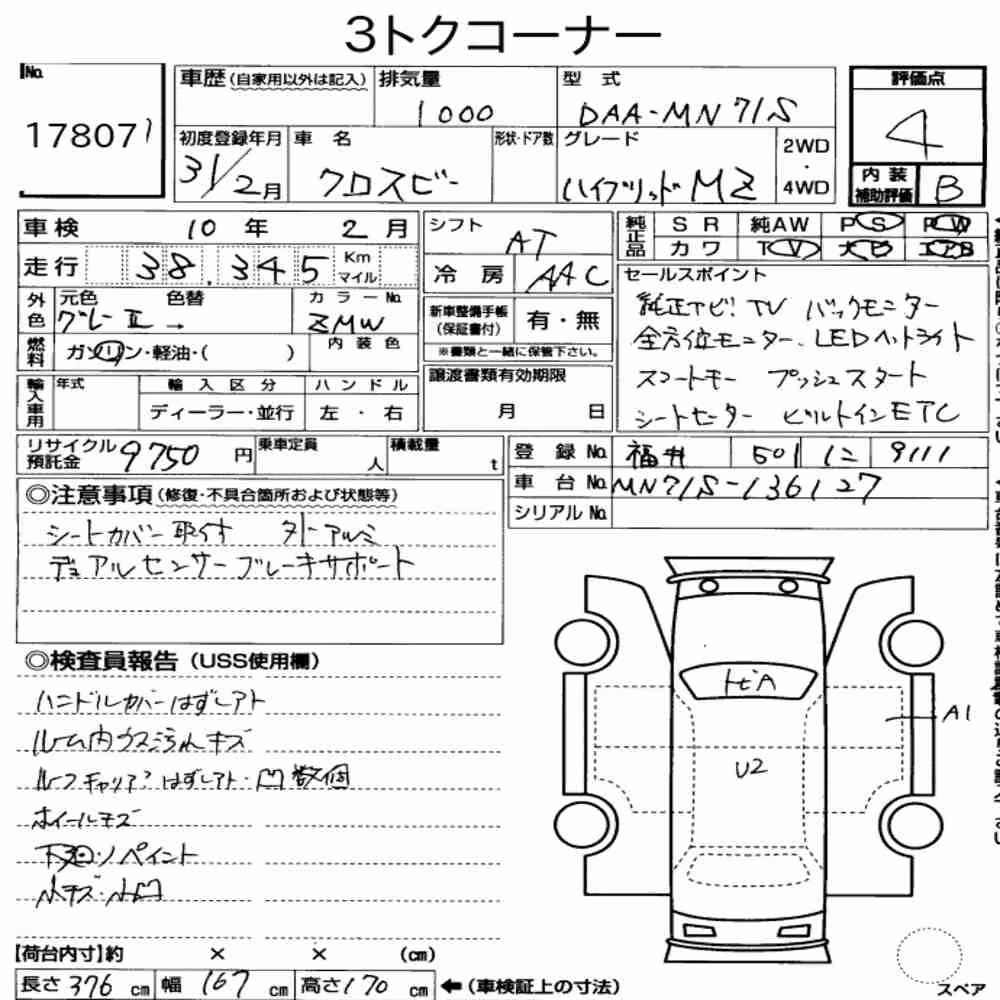 3トクコーナー
No.
17807
車歴(自家用以外は記入) 排気量 型式
1000 DAA-MN71S
初度登録年月 車名 形状・ドア数 グレード
31/2月 クロスビー ハイブリッドMZ
2WD
・
4WD
評価点
4
内装
補助評価 B
車検 10年 2月
走行 38,345 Km マイル
外色 元色 色替 カラーNo.
グレーⅡ→ ZMW
燃料 ガソリン・軽油・( ) 内装色
輸入車用 年式 輸入区分 ハンドル
ディーラー・並行 左・右
シフト AT
冷房 AAC
新車整備手帳
(保証書付) 有・無
※書類と一緒に保管下さい。
譲渡書類有効期限
月 日
純正品 SR 純AW PS PW
カワ TV ナビ エアB
セールスポイント
純正ナビ! TV バックモニター
全方位モニター、LEDヘッドライト
スマートキー プッシュスタート
シートヒーター ビルトインETC
リサイクル預託金 9750円 乗車定員 人 積載量 t
登録No. 福井 501 に 9111
車台No. MN71S-136127
シリアルNo.
◎注意事項(修復・不具合箇所および状態等)
シートカバー取らず 外アルミ
デュアルセンサーブレーキサポート
◎検査員報告(USS使用欄)
ハンドルカバーはずしアト
ルーム内ウス汚れキズ
ルーフキャリアはずしアト・凹数個
ホイールキズ
下廻ノペイント
小キズ・小凹
トビA
A1
U2
【荷台内寸】約 × × (cm)
長さ376cm 幅167cm 高さ170cm ←(車検証上の寸法)
スペア